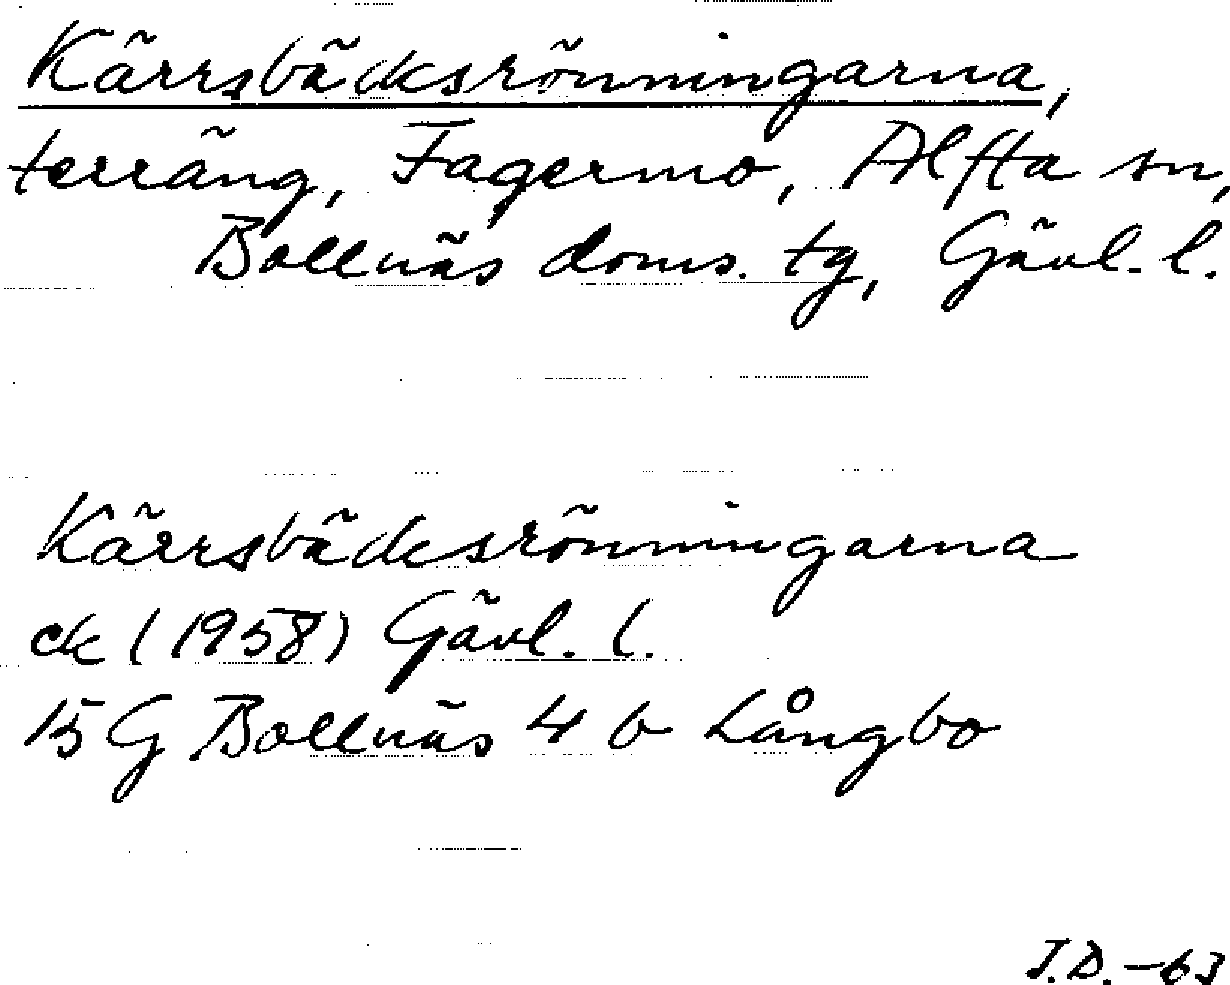 Kärrsbäcksrönningarna,
terräng, Fagermo, Alfta sn,
Bollnäs doms. tg, Gävl. l.
Kärrsbäcksrönningarna
ek (1958) Gävl. l.
15 G Bollnäs 4 b Långbo
I.D. -63